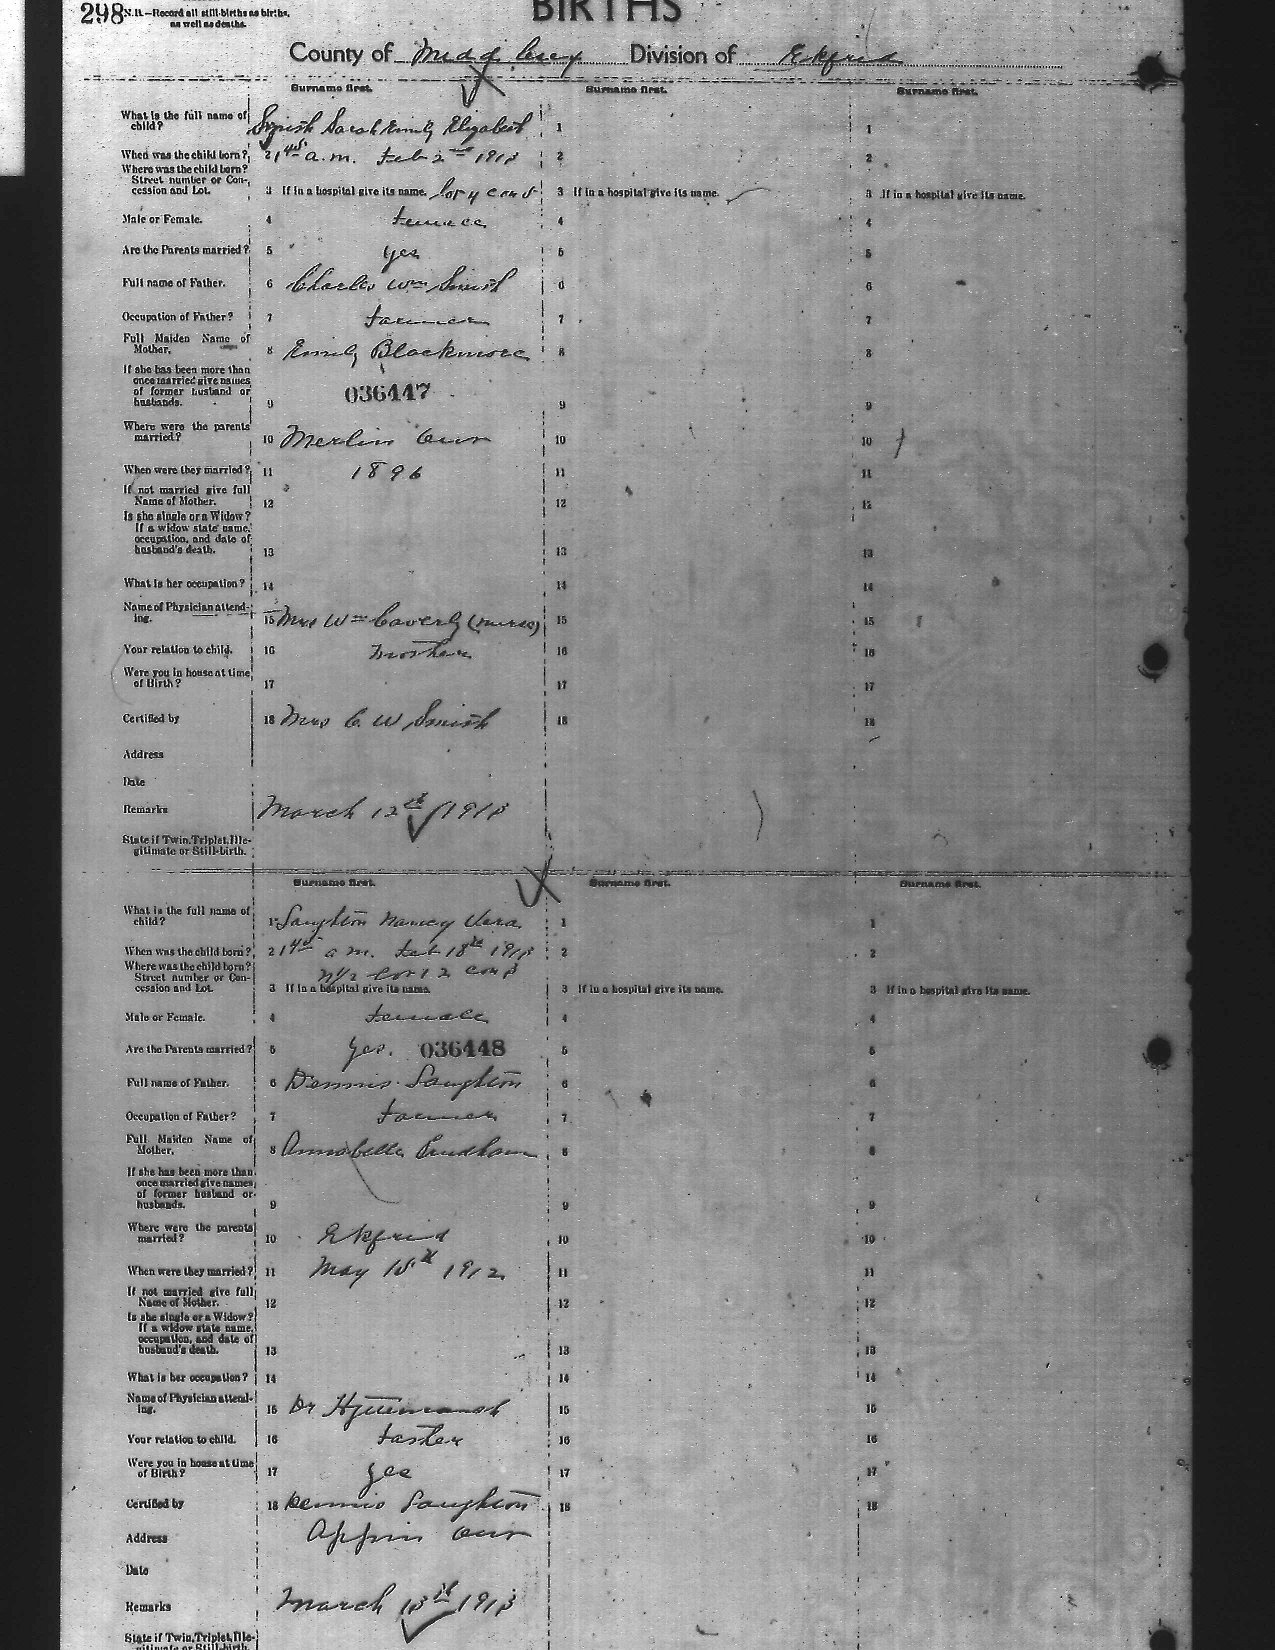 298
N.B.—Record all still-births as births,
as well as deaths.
BIRTHS
County of Middlesex Division of Ekfrid
Surname first. Surname first. Surname first.
What is the full name of child? Smith Sarah Emily Elizabeth 1 1
When was the child born? 2 1 45 a.m. Feb 2nd 1913 2 2
Where was the child born?
Street number or Con-
cession and Lot. 3 If in a hospital give its name. lot 4 con 5 3 If in a hospital give its name. 3 If in a hospital give its name.
Male or Female. 4 Female 4 4
Are the Parents married? 5 yes 5 5
Full name of Father. 6 Charles Wm Smith 6 6
Occupation of Father? 7 Farmer 7 7
Full Maiden Name of
Mother. 8 Emily Blackmore 8 8
If she has been more than
once married give names
of former husband or
husbands. 9 036447 9 9
Where were the parents
married? 10 Merlin Ont 10 10
When were they married? 11 1896 11 11
If not married give full
Name of Mother. 12 12 12
Is she single or a Widow?
If a widow state name,
occupation, and date of
husband's death. 13 13 13
What is her occupation? 14 14 14
Name of Physician attend-
ing. 15 Mrs Wm Coverly (nurse) 15 15
Your relation to child. 16 Mother 16 16
Were you in house at time
of Birth? 17 17 17
Certified by 18 Mrs C W Smith 18 18
Address
Date
Remarks March 12th 1913
State if Twin, Triplet, Ille-
gitimate or Still-birth.
Surname first. Surname first. Surname first.
What is the full name of
child? 1 Laughton Nancy Vera 1 1
When was the child born? 2 1 45 a m. Feb 18th 1913 2 2
Where was the child born?
Street number or Con-
cession and Lot. N1/2 Lot 12 con 3
3 If in a hospital give its name. 3 If in a hospital give its name. 3 If in a hospital give its name.
Male or Female. 4 Female 4 4
Are the Parents married? 5 yes. 036448 5 5
Full name of Father. 6 Dennis Laughton 6 6
Occupation of Father? 7 Farmer 7 7
Full Maiden Name of
Mother. 8 Annabella Prudham 8 8
If she has been more than
once married give names
of former husband or
husbands. 9 9 9
Where were the parents
married? 10 Ekfrid 10 10
When were they married? 11 May 15th 1912 11 11
If not married give full
Name of Mother. 12 12 12
Is she single or a Widow?
If a widow state name,
occupation, and date of
husband's death. 13 13 13
What is her occupation? 14 14 14
Name of Physician attend-
ing. 15 Dr 15 15
Your relation to child. 16 Father 16 16
Were you in house at time
of Birth? 17 yes 17 17
Certified by 18 Dennis Laughton 18 18
Address Appin Ont
Date
Remarks March 13th 1913
State if Twin, Triplet, Ille-
gitimate or Still-birth.